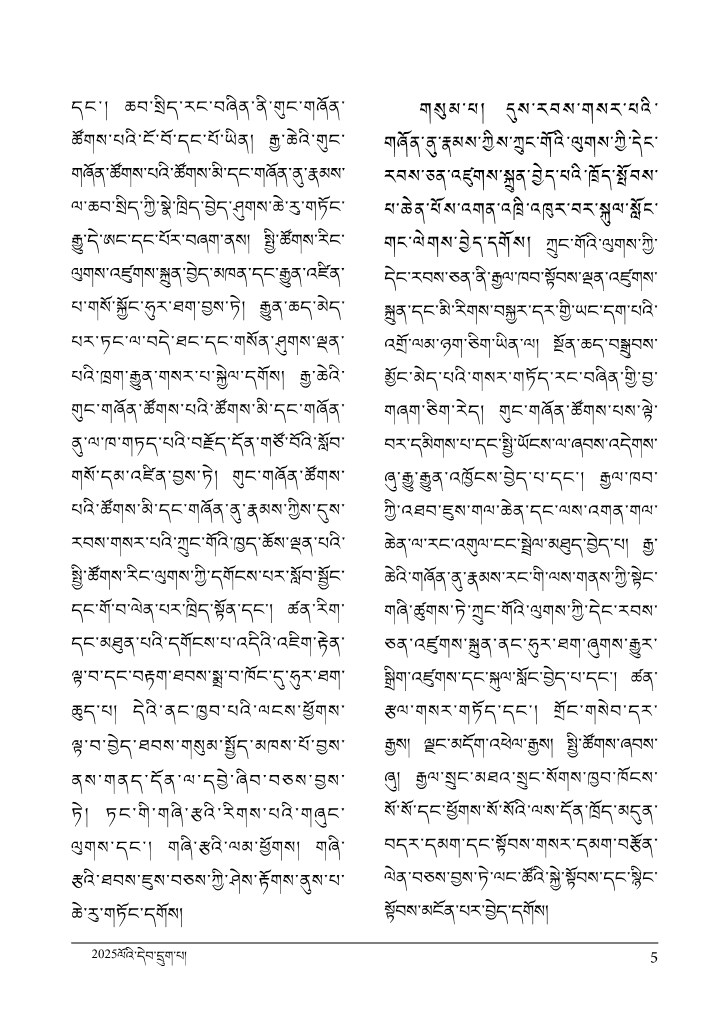 དང་། ཆབ་སྲིད་རང་བཞིན་ནི་གུང་གཞོན་
ཚོགས་པའི་ངོ་བོ་དང་པོ་ཡིན། རྒྱ་ཆེའི་གུང་
གཞོན་ཚོགས་པའི་ཚོགས་མི་དང་གཞོན་ནུ་རྣམས་
ལ་ཆབ་སྲིད་ཀྱི་སྣེ་ཁྲིད་བྱེད་ཤུགས་ཆེ་རུ་གཏོང་
རྒྱུ་དེ་ཨང་དང་པོར་བཞག་ནས། སྤྱི་ཚོགས་རིང་
ལུགས་འཛུགས་སྐྲུན་བྱེད་མཁན་དང་རྒྱུན་འཛིན་
པ་གསོ་སྐྱོང་ཧུར་ཐག་བྱས་ཏེ། རྒྱུན་ཆད་མེད་
པར་ཏང་ལ་བདེ་ཐང་དང་གསོན་ཤུགས་ལྡན་
པའི་ཁྲག་རྒྱུན་གསར་པ་སྐྱེལ་དགོས། རྒྱ་ཆེའི་
གུང་གཞོན་ཚོགས་པའི་ཚོགས་མི་དང་གཞོན་
ནུ་ལ་ཁ་གཏད་པའི་བརྗོད་དོན་གཙོ་བོའི་སློབ་
གསོ་དམ་འཛིན་བྱས་ཏེ། གུང་གཞོན་ཚོགས་
པའི་ཚོགས་མི་དང་གཞོན་ནུ་རྣམས་ཀྱིས་དུས་
རབས་གསར་པའི་ཀྲུང་གོའི་ཁྱད་ཆོས་ལྡན་པའི་
སྤྱི་ཚོགས་རིང་ལུགས་ཀྱི་དགོངས་པར་སློབ་སྦྱོང་
དང་གོ་བ་ལེན་པར་ཁྲིད་སྟོན་དང་། ཚན་རིག་
དང་མཐུན་པའི་དགོངས་པ་འདིའི་འཇིག་རྟེན་
ལྟ་བ་དང་བརྟག་ཐབས་སྨྲ་བ་ཁོང་དུ་ཧུར་ཐག་
ཆུད་པ། དེའི་ནང་ཁྱབ་པའི་ལངས་ཕྱོགས་
ལྟ་བ་བྱེད་ཐབས་གསུམ་སྤྱོད་མཁས་པོ་བྱས་
ནས་གནད་དོན་ལ་དབྱེ་ཞིབ་བཅས་བྱས་
ཏེ། ཏང་གི་གཞི་རྩའི་རིགས་པའི་གཞུང་
ལུགས་དང་། གཞི་རྩའི་ལམ་ཕྱོགས། གཞི་
རྩའི་ཐབས་ཇུས་བཅས་ཀྱི་ཤེས་རྟོགས་ནུས་པ་
ཆེ་རུ་གཏོང་དགོས།
གསུམ་པ། དུས་རབས་གསར་པའི་
གཞོན་ནུ་རྣམས་ཀྱིས་ཀྲུང་གོའི་ལུགས་ཀྱི་དེང་
རབས་ཅན་འཛུགས་སྐྲུན་བྱེད་པའི་ཁྲོད་སྤོབས་
པ་ཆེན་པོས་འགན་འཁྲི་འཁུར་བར་སྐུལ་སློང་
གང་ལེགས་བྱེད་དགོས། ཀྲུང་གོའི་ལུགས་ཀྱི་
དེང་རབས་ཅན་ནི་རྒྱལ་ཁབ་སྟོབས་ལྡན་འཛུགས་
སྐྲུན་དང་མི་རིགས་བསྐྱར་དར་གྱི་ཡང་དག་པའི་
འགྲོ་ལམ་ཉག་ཅིག་ཡིན་ལ། སྔོན་ཆད་བསྒྲུབས་
མྱོང་མེད་པའི་གསར་གཏོད་རང་བཞིན་གྱི་བྱ་
གཞག་ཅིག་རེད། གུང་གཞོན་ཚོགས་པས་ལྟེ་
བར་དམིགས་པ་དང་སྤྱི་ཡོངས་ལ་ཞབས་འདེགས་
ཞུ་རྒྱུ་རྒྱུན་འཁྱོངས་བྱེད་པ་དང་། རྒྱལ་ཁབ་
ཀྱི་འཐབ་ཇུས་གལ་ཆེན་དང་ལས་འགན་གལ་
ཆེན་ལ་རང་འགུལ་ངང་སྦྲེལ་མཐུད་བྱེད་པ། རྒྱ་
ཆེའི་གཞོན་ནུ་རྣམས་རང་གི་ལས་གནས་ཀྱི་སྟེང་
གཞི་ཚུགས་ཏེ་ཀྲུང་གོའི་ལུགས་ཀྱི་དེང་རབས་
ཅན་འཛུགས་སྐྲུན་ནང་ཧུར་ཐག་ཞུགས་རྒྱུར་
སྒྲིག་འཛུགས་དང་སྐུལ་སློང་བྱེད་པ་དང་། ཚན་
རྩལ་གསར་གཏོད་དང་། གྲོང་གསེབ་དར་
རྒྱས། ལྗང་མདོག་འཕེལ་རྒྱས། སྤྱི་ཚོགས་ཞབས་
ཞུ། རྒྱལ་སྲུང་མཐའ་སྲུང་སོགས་ཁྱབ་ཁོངས་
སོ་སོ་དང་ཕྱོགས་སོ་སོའི་ལས་དོན་ཁྲོད་མདུན་
བདར་དམག་དང་སྟོབས་གསར་དམག་བརྩོན་
ལེན་བཅས་བྱས་ཏེ་ལང་ཚོའི་སྐྱེ་སྟོབས་དང་སྙིང་
སྟོབས་མངོན་པར་བྱེད་དགོས།
2025ལོའི་དེབ་དྲུག་པ།
5